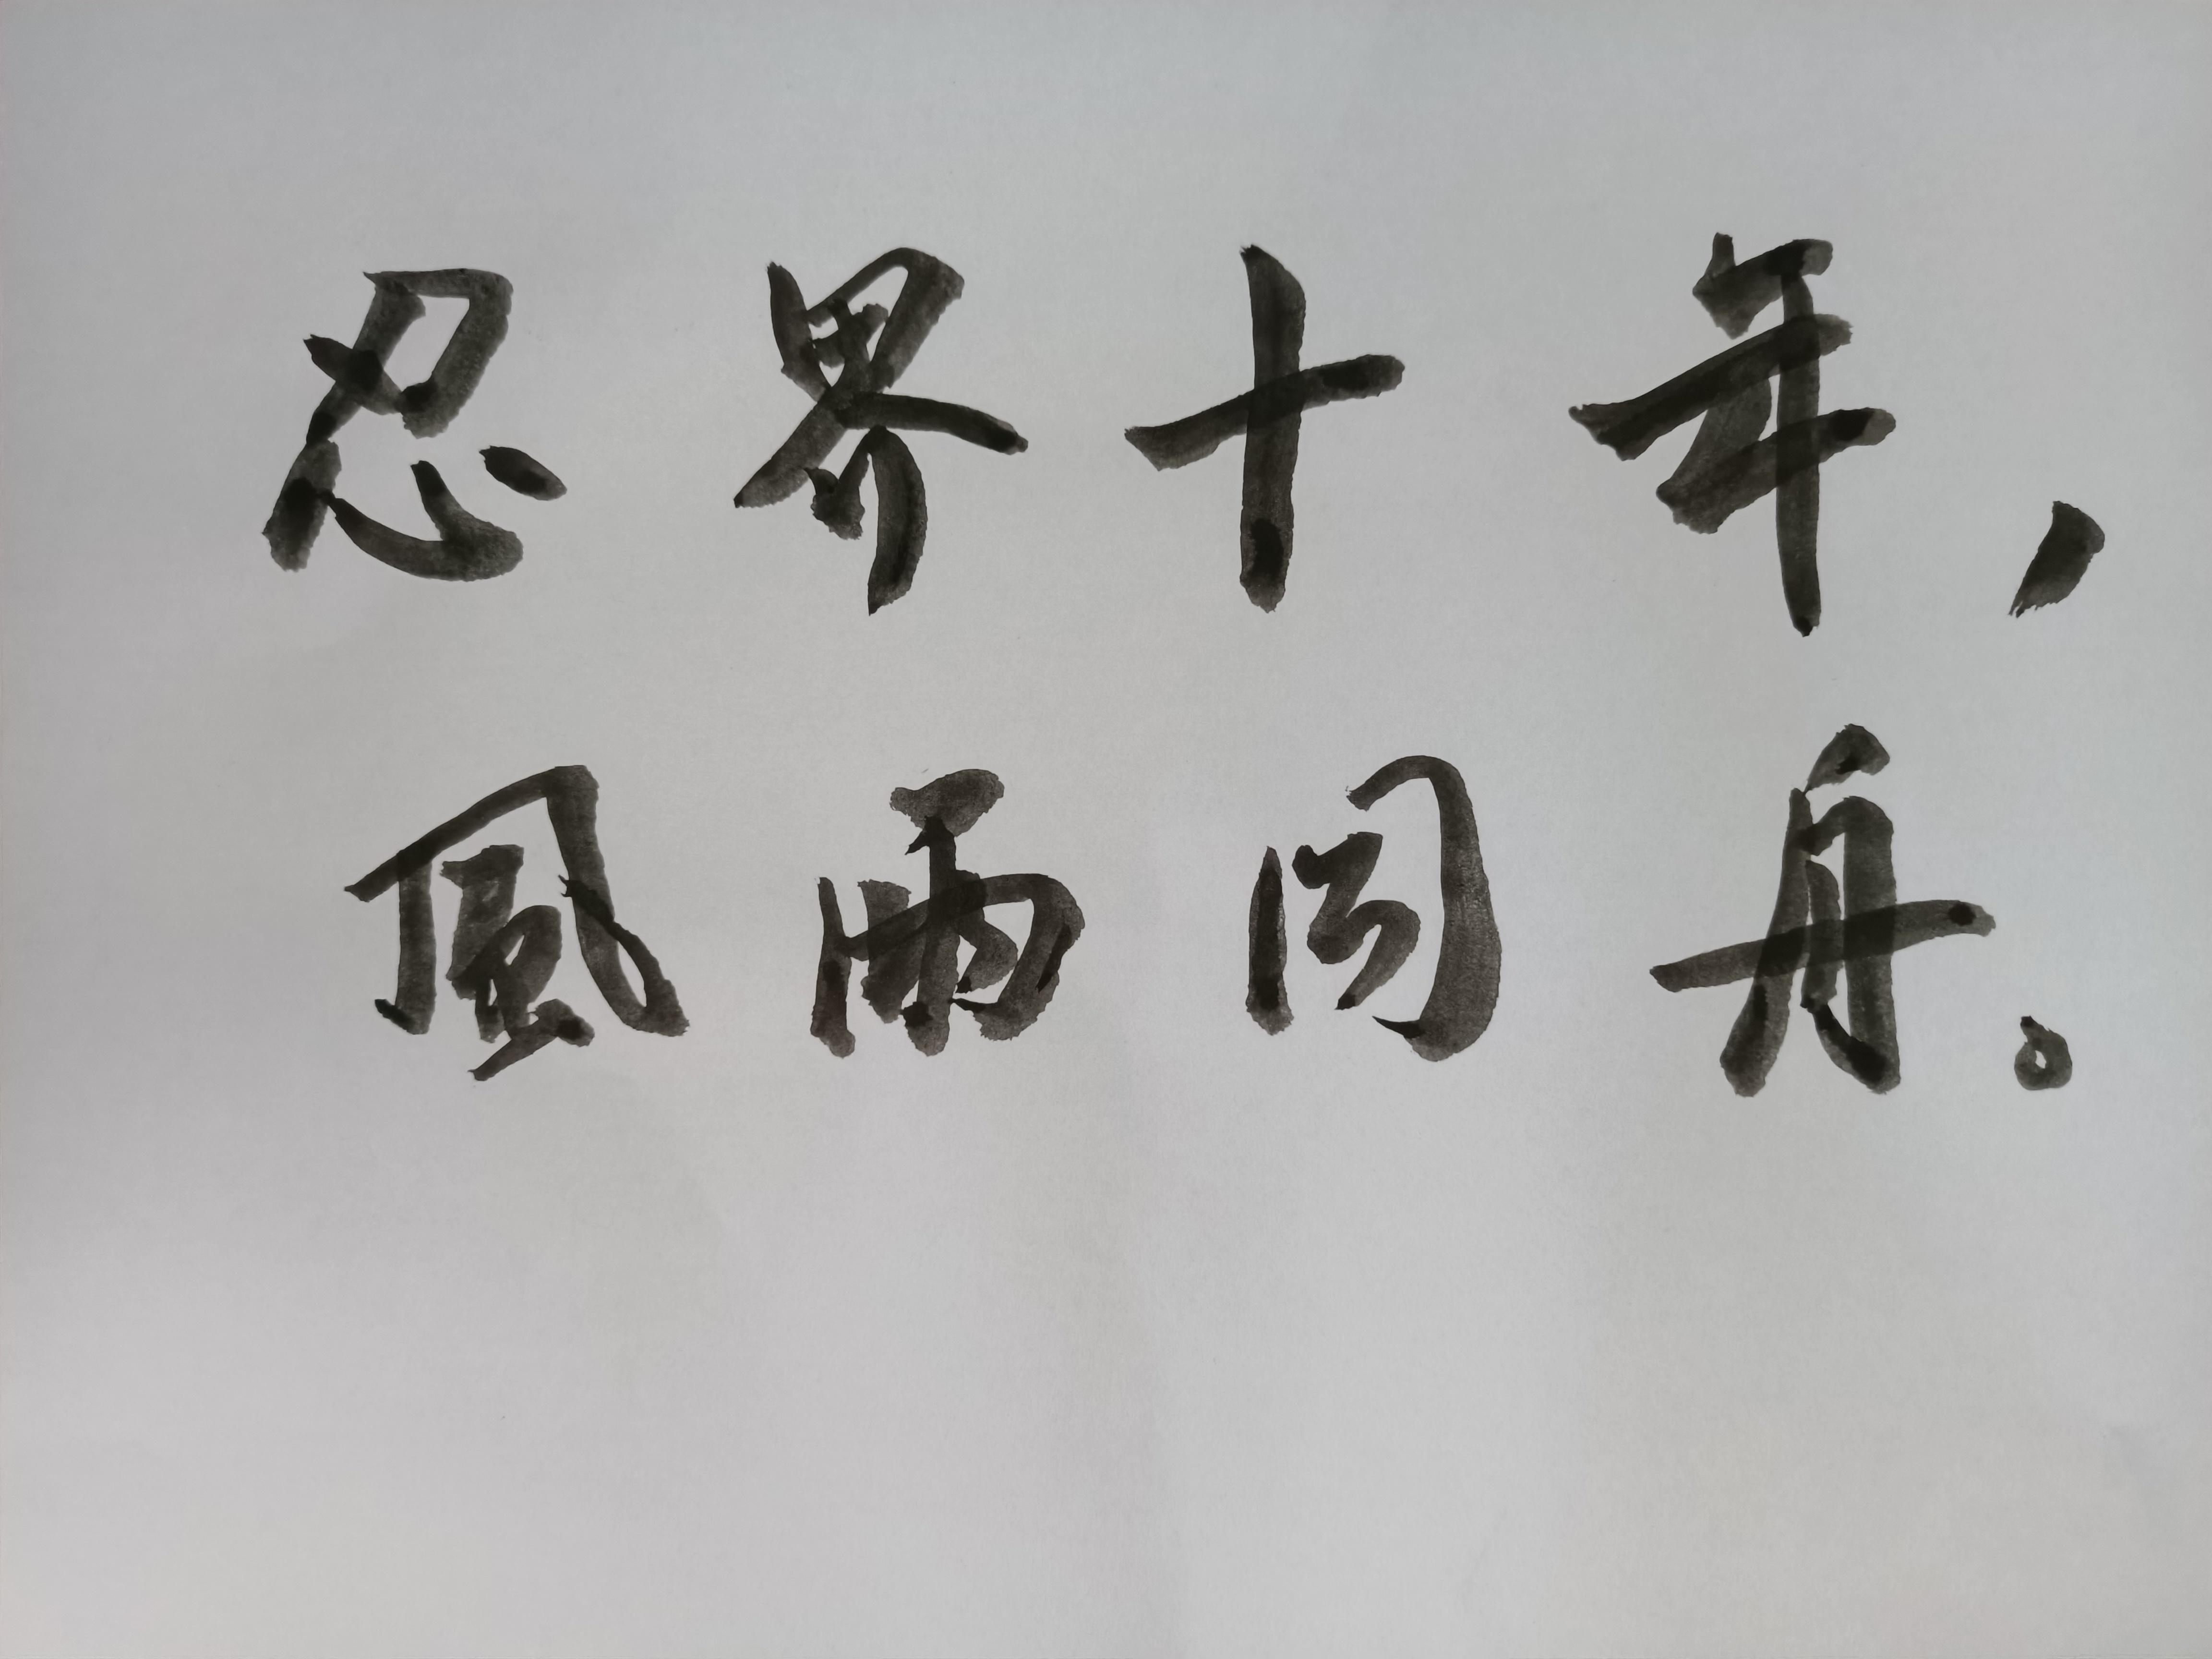 忍界十年，
風雨同舟。